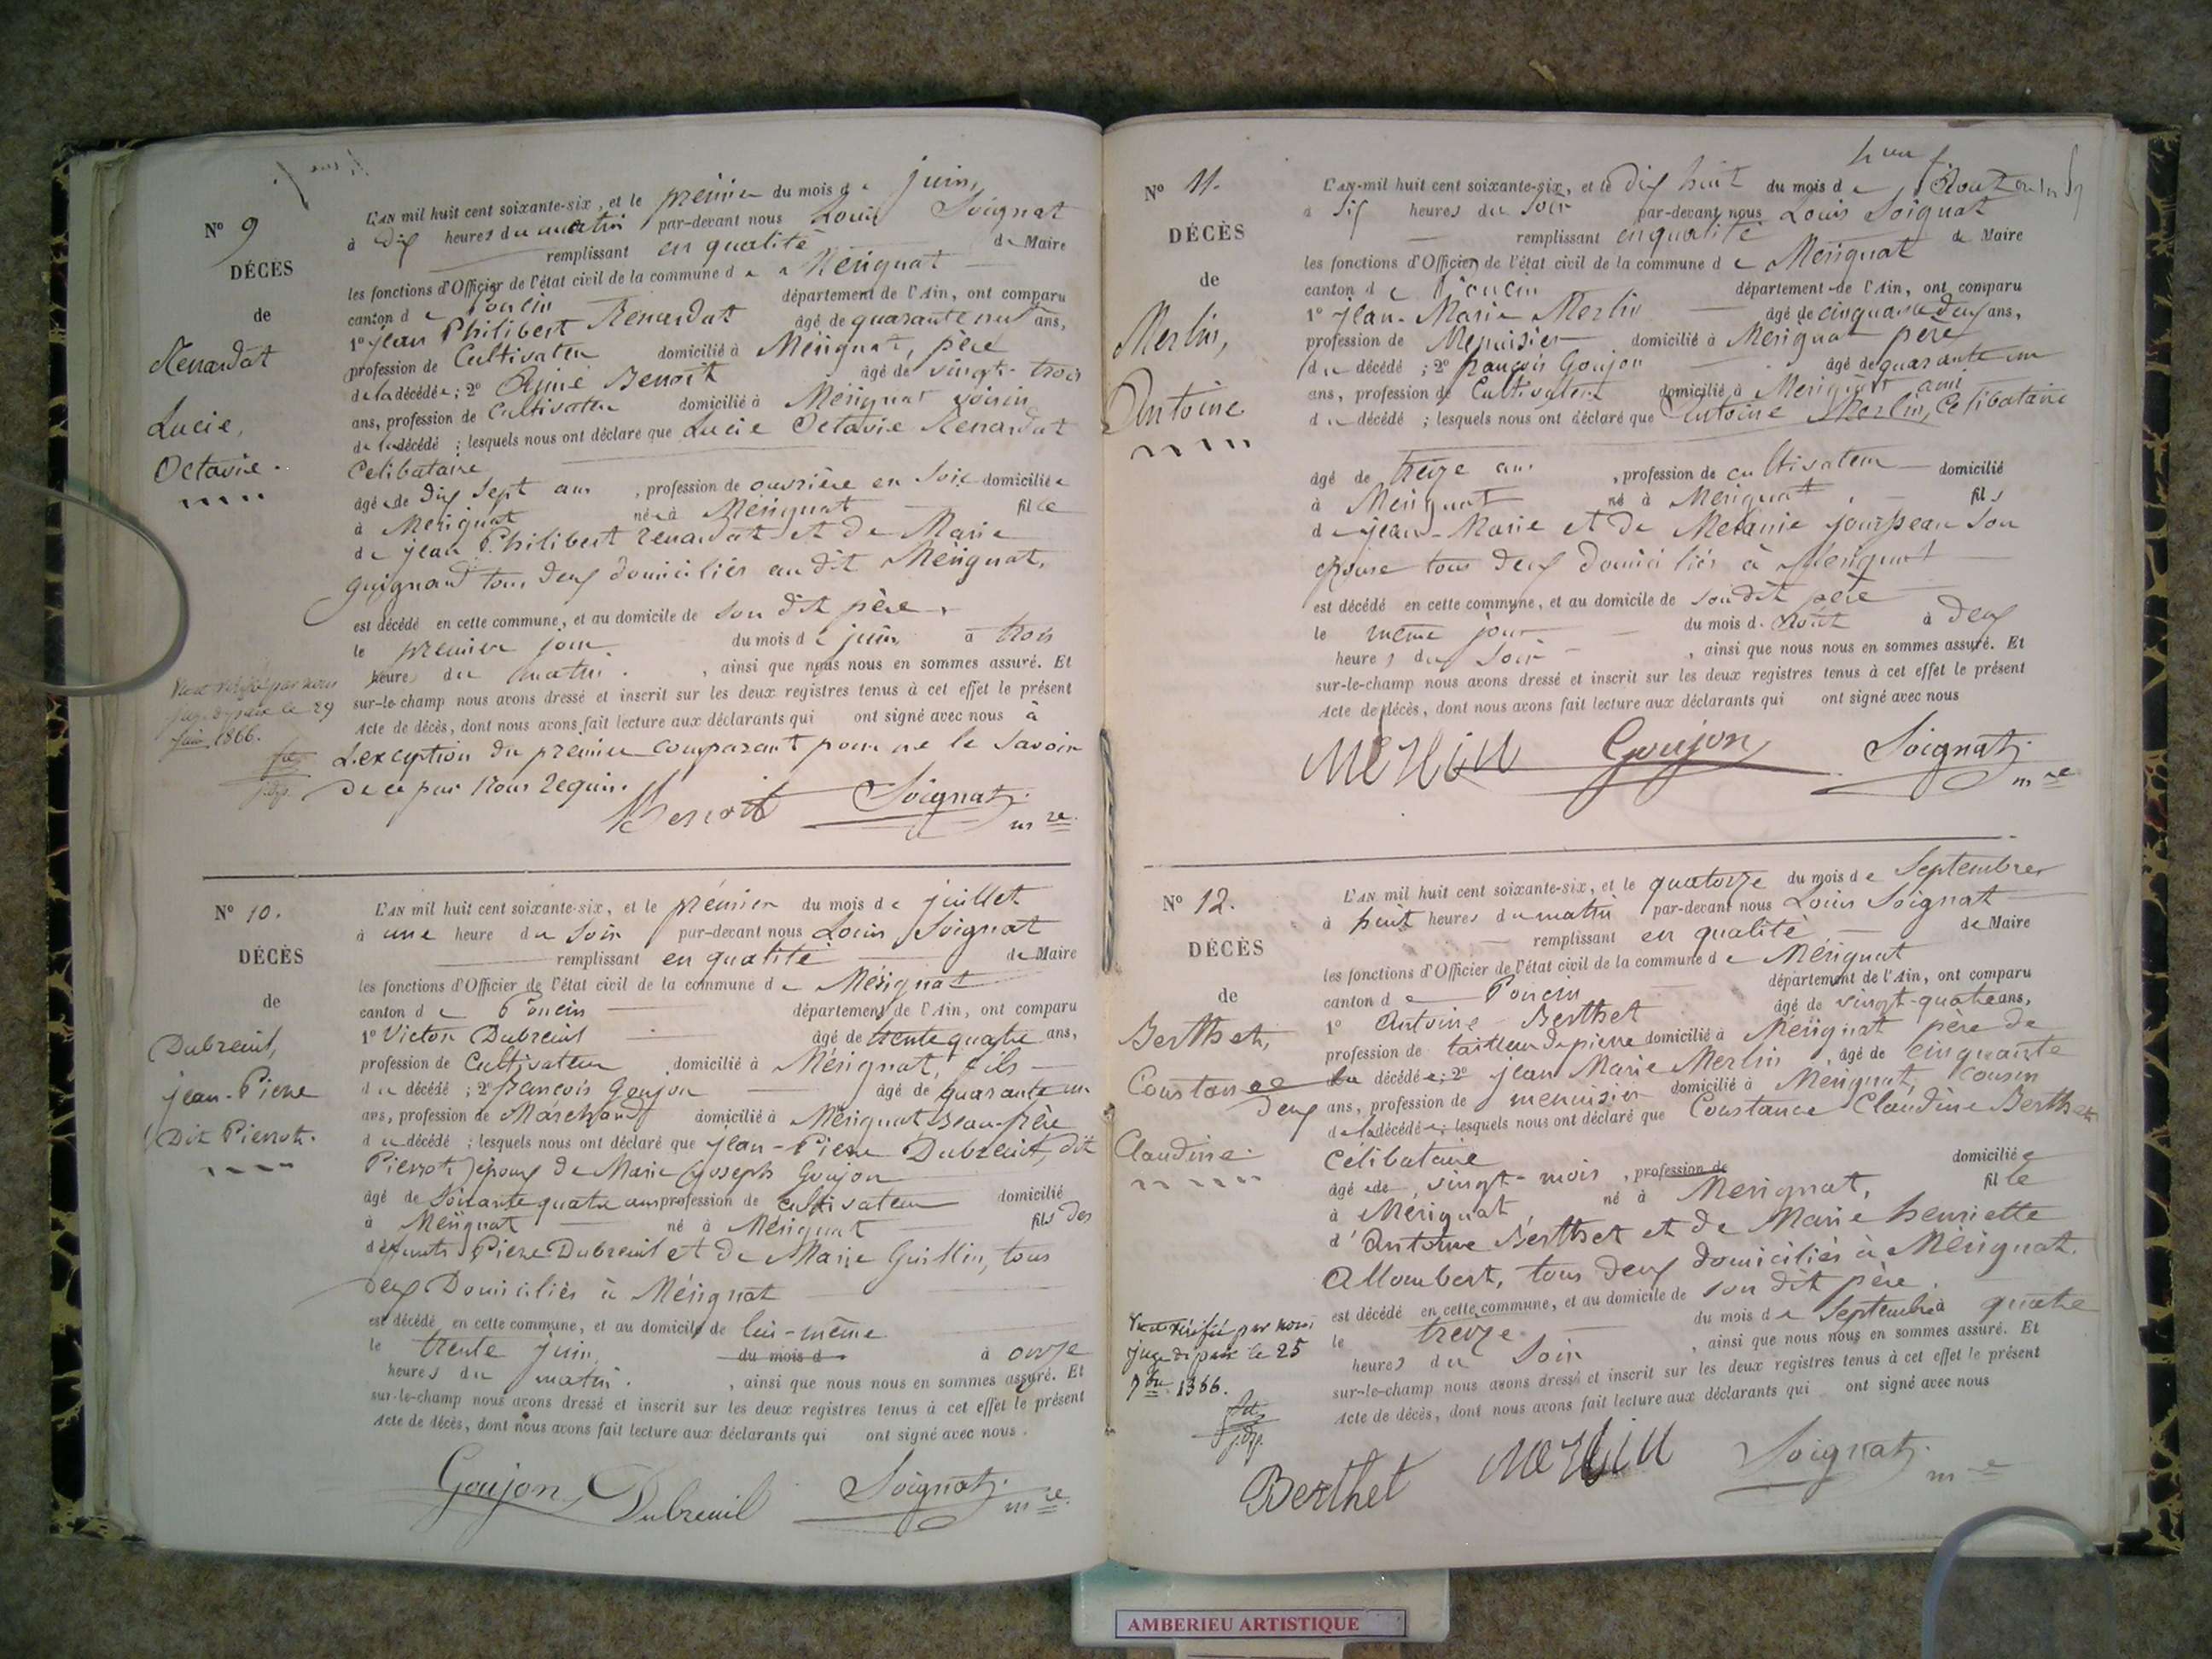 N° 9
DÉCÈS
de
Renardat
Lucie,
Octavie.
L'AN mil huit cent soixante-six, et le premier du mois de juin,
à dix heures du matin par-devant nous Louis Soignat
remplissant en qualité de Maire
les fonctions d'Officier de l'état civil de la commune de Mérignat
canton de Poncin département de l'Ain, ont comparu
1° Jean Philibert Renardat âgé de quarante neuf ans,
profession de Cultivateur domicilié à Mérignat, père
de la décédée; 2° Aimé Benoît âgé de vingt-trois
ans, profession de Cultivateur domicilié à Mérignat voisin
de la décédé; lesquels nous ont déclaré que Lucie Octavie Renardat
Celibataire
âgée de dix sept ans, profession de ouvrière en Soie domiciliée
à Mérignat née à Mérignat fille
de Jean Philibert Renardat et de Marie
Guignard tous deux domiciliés au dit Mérignat,
est décédé en cette commune, et au domicile de son dit père,
le premier jour du mois de juin à trois
heures du matin, ainsi que nous nous en sommes assuré. Et
sur-le-champ nous avons dressé et inscrit sur les deux registres tenus à cet effet le présent
Acte de décès, dont nous avons fait lecture aux déclarants qui ont signé avec nous à
L'exception du premier comparant pour ne le Savoir
de ce par Nous requis.
Vu et vérifié par nous
juge de paix le 29
juin 1866.
Benoit Soignat mre
N° 10.
DÉCÈS
de
Dubreuil,
Jean-Pierre
Dit Pierrot.
L'AN mil huit cent soixante-six, et le premier du mois de juillet
à une heure du Soir par-devant nous Louis Soignat
remplissant en qualité de Maire
les fonctions d'Officier de l'état civil de la commune de Mérignat
canton de Poncin département de l'Ain, ont comparu
1° Victor Dubreuil âgé de trente quatre ans,
profession de Cultivateur domicilié à Mérignat, fils
du décédé; 2° françois Goujon âgé de quarante un
ans, profession de Marchand domicilié à Mérignat Beau-frère
du décédé; lesquels nous ont déclaré que Jean-Pierre Dubreuil, dit
Pierrot, époux de Marie Joseph Goujon
âgé de Soixante quatre ans profession de cultivateur domicilié
à Mérignat né à Mérignat fils des
défunts Pierre Dubreuil et de Marie Guillin, tous
deux Domiciliés à Mérignat
est décédé en cette commune, et au domicile de lui-même
le trente juin du mois d à onze
heures du matin, ainsi que nous nous en sommes assuré. Et
sur-le-champ nous avons dressé et inscrit sur les deux registres tenus à cet effet le présent
Acte de décès, dont nous avons fait lecture aux déclarants qui ont signé avec nous.
Goujon Dubreuil Soignat mre
N° 11.
DÉCÈS
de
Merlin,
Antoine
L'AN mil huit cent soixante-six, et le dix huit du mois de Août
à Six heures du Soir par-devant nous Louis Soignat
remplissant en qualité de Maire
les fonctions d'Officier de l'état civil de la commune de Mérignat
canton de Poncin département de l'Ain, ont comparu
1° Jean-Marie Merlin âgé de cinquante deux ans,
profession de Menuisier domicilié à Mérignat père
du décédé; 2° françois Goujon âgé de quarante un
ans, profession de Cultivateur domicilié à Mérignat ami
du décédé; lesquels nous ont déclaré que Antoine Merlin, Celibataire
âgé de treize ans, profession de cultivateur domicilié
à Mérignat né à Mérignat, fils
de Jean-Marie et de Mélanie Jourpeau Son
épouse tous deux domiciliés à Mérignat
est décédé en cette commune, et au domicile de son dit père
le même jour du mois d'Août à deux
heures du Soir, ainsi que nous nous en sommes assuré. Et
sur-le-champ nous avons dressé et inscrit sur les deux registres tenus à cet effet le présent
Acte de décès, dont nous avons fait lecture aux déclarants qui ont signé avec nous
Merlin Goujon Soignat mre
N° 12.
DÉCÈS
de
Berthet,
Constance
Claudine.
L'AN mil huit cent soixante-six, et le quatorze du mois de Septembre
à huit heures du matin par-devant nous Louis Soignat
remplissant en qualité de Maire
les fonctions d'Officier de l'état civil de la commune de Mérignat
canton de Poncin département de l'Ain, ont comparu
1° Antoine Berthet âgé de vingt-quatre ans,
profession de tailleur de pierre domicilié à Mérignat père de
la décédée; 2° Jean Marie Merlin, âgé de cinquante
deux ans, profession de menuisier domicilié à Mérignat, cousin
de la décédée; lesquels nous ont déclaré que Constance Claudine Berthet
Célibataire
âgée de vingt-mois, profession de domiciliée
à Mérignat, né à Mérignat, fille
d'Antoine Berthet et de Marie henriette
Allombert, tous deux domiciliés à Mérignat.
est décédé en cette commune, et au domicile de son dit père.
le treize du mois de Septembre à quatre
heures du Soir, ainsi que nous nous en sommes assuré. Et
sur-le-champ nous avons dressé et inscrit sur les deux registres tenus à cet effet le présent
Acte de décès, dont nous avons fait lecture aux déclarants qui ont signé avec nous
Vu et vérifié par nous
juge de paix le 25
7bre 1866.
Berthet Merlin Soignat mre
AMBERIEU ARTISTIQUE